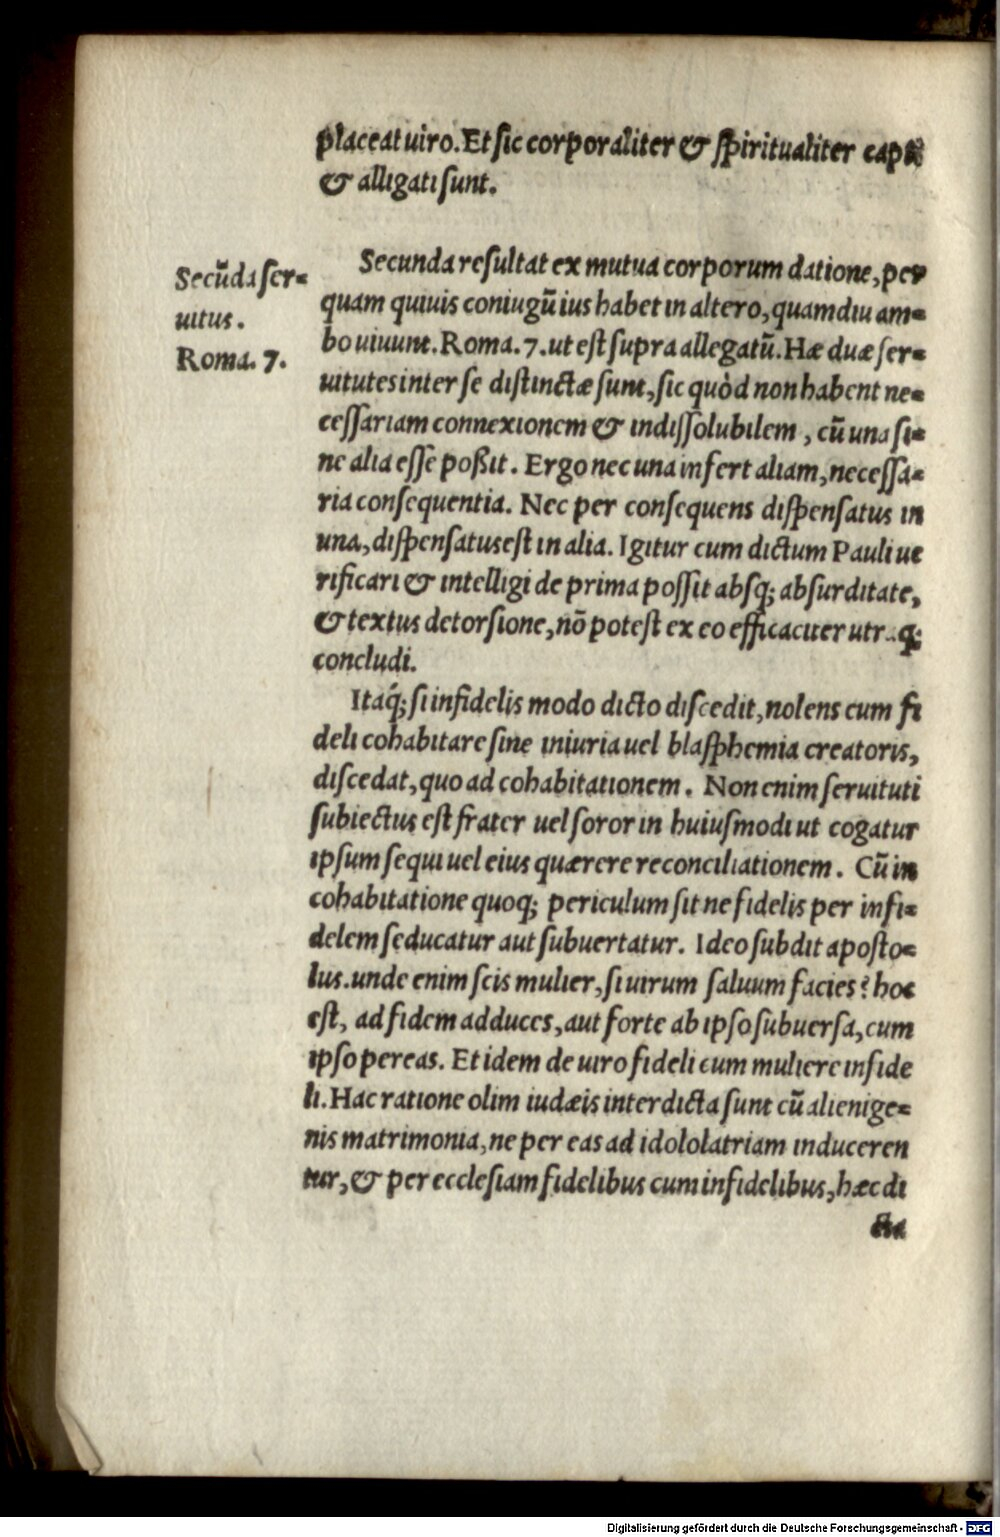 placeat uiro. Et sic corporaliter & spiritualiter
& alligati sunt.
Secūda ser=
uitus.
Roma. 7.
Secunda resultat ex mutua corporum datione, per
quam quiuis coniugū ius habet in altero, quamdiu am=
bo uiuunt. Roma. 7. ut est supra allegatū. Hæ duæ ser=
uitutes inter se distinctæ sunt, sic quòd non habent ne=
cessariam connexionem & indissolubilem, cū una si=
ne alia esse poßit. Ergo nec una infert aliam, necessa=
ria consequentia. Nec per consequens dispensatus in
una, dispensatus est in alia. Igitur cum dictum Pauli ue
rificari & intelligi de prima possit absq; absurditate,
& textus detorsione, nō potest ex eo efficaciter utr..q;
concludi.
Itaq́; si infidelis modo dicto discedit, nolens cum fi
deli cohabitare sine iniuria uel blasphemia creatoris,
discedat, quo ad cohabitationem. Non enim seruituti
subiectus est frater uel soror in huiusmodi ut cogatur
ipsum sequi uel eius quærere reconciliationem. Cū in
cohabitatione quoq; periculum sit ne fidelis per infi=
delem seducatur aut subuertatur. Ideo subdit aposto=
lus. unde enim scis mulier, si uirum saluum facies? hoc
est, ad fidem adduces, aut forte ab ipso subuersa, cum
ipso pereas. Et idem de uiro fideli cum muliere infide
li. Hac ratione olim iudæis interdicta sunt cū alienige=
nis matrimonia, ne per eas ad idololatriam induceren
tur, & per ecclesiam fidelibus cum infidelibus, hæc di
cta
Digitalisierung gefördert durch die Deutsche Forschungsgemeinschaft - DFG